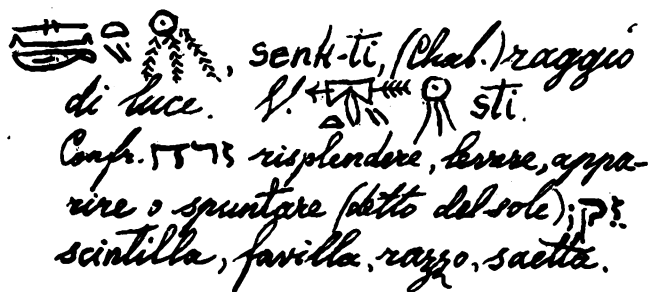 , senk-ti, (Chab.) raggio
di luce. V. sti.
Confr. risplendere, levare, appa-
rire o spuntare (detto del sole);
scintilla, favilla, razzo, saetta.